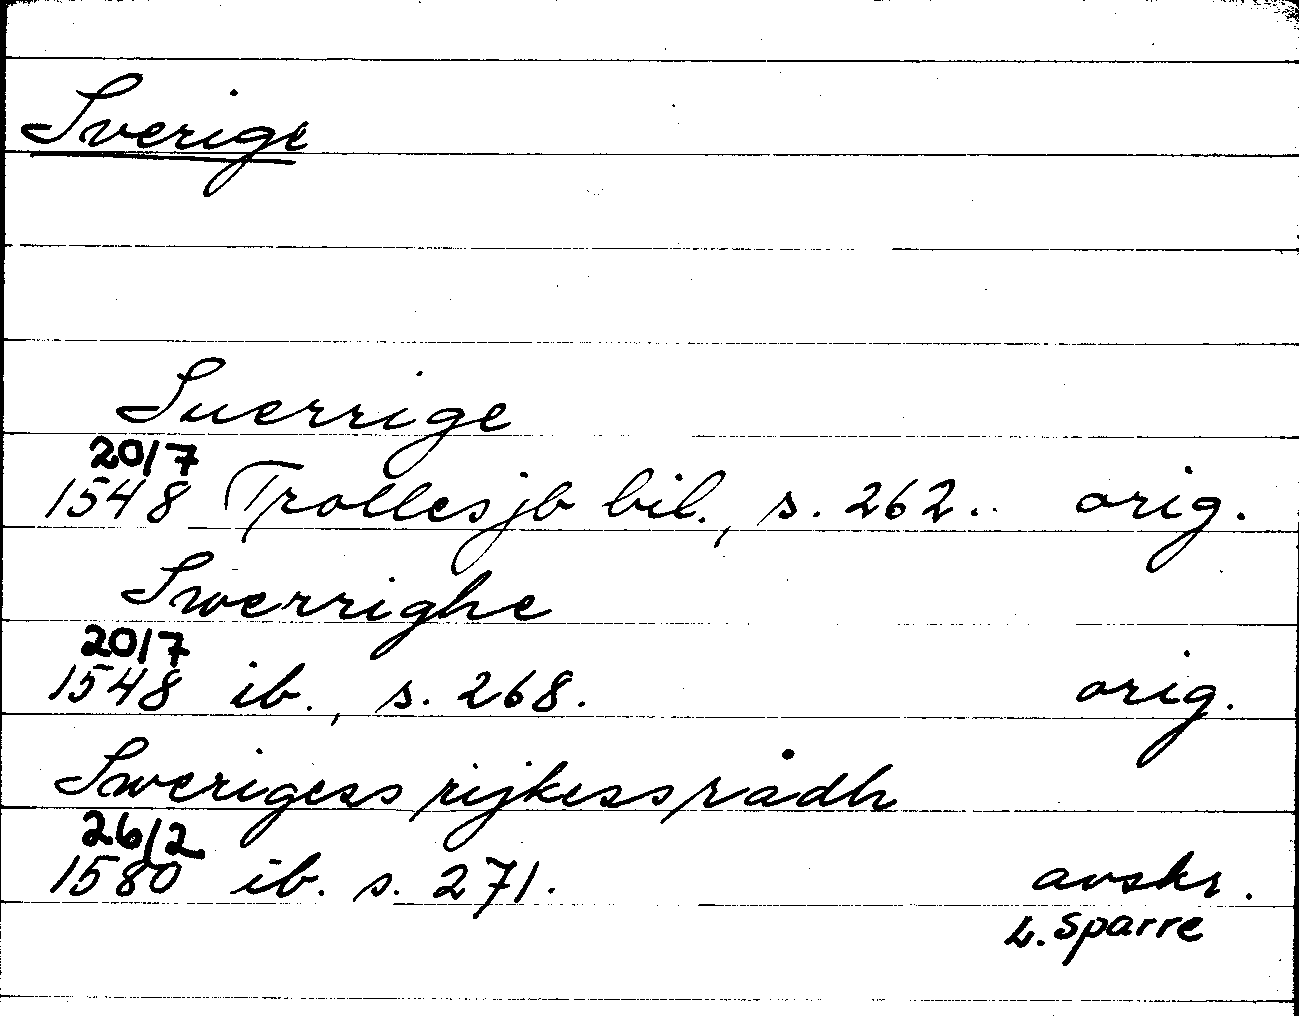 Sverige
Suerrige
20/7
1548 Trolles jb bil., s. 262. orig.
Swerrighe
20/7
1548 ib., s. 268. orig.
Swerigess rijkess rådh
26/2
1580 ib. s. 271. avskr.
L. Sparre